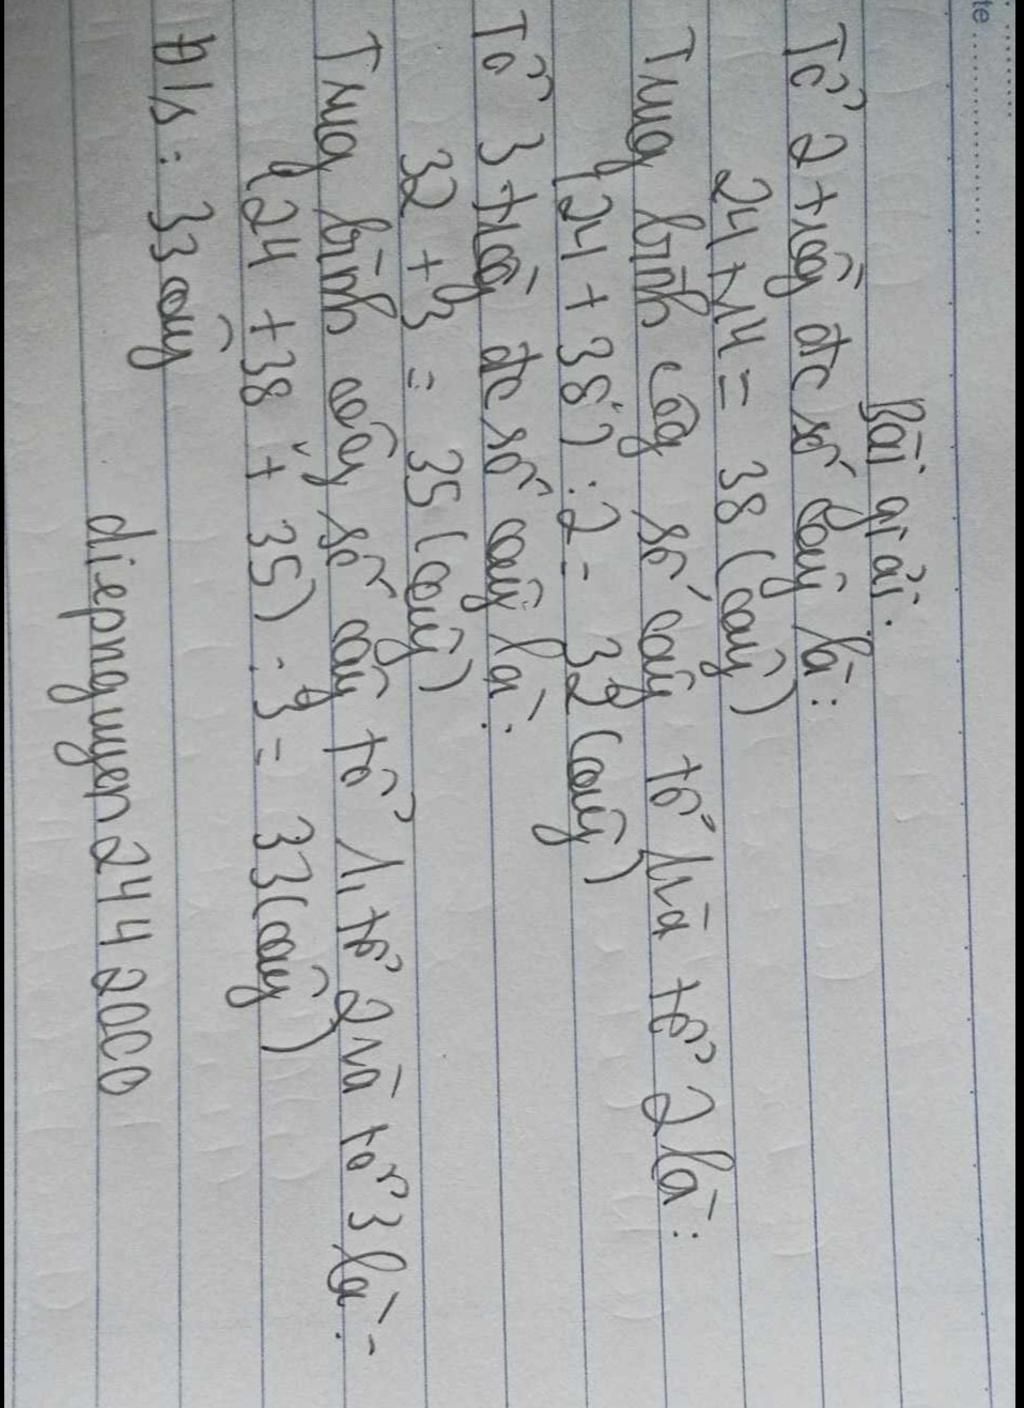 te
Bài giải:
Tổ 2 trồg đc số cây là:
24 + 14 = 38 (cây)
Trug bình cộg số cây tổ 1 và tổ 2 là:
(24 + 38) : 2 = 32 (cây)
Tổ 3 trồg đc số cây là:
32 + 3 = 35 (cây)
Trug bình cộg số cây tổ 1, tổ 2 và tổ 3 là:
(24 + 38 + 35) : 3 = 33 (cây)
Đ/s: 33 cây
diepnguyen2442000